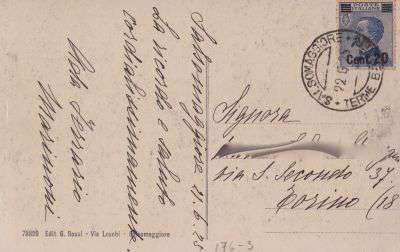 Salsomaggiore 22.6.25
La ricordo e saluto
cordialissimamente
Massimoni
POSTE ITALIANE
Cent. 20
SALSOMAGGIORE
TERME
22.6
Signora
via S. Secondo 37.
Torino (18
78809 Edit. G. Rossi - Via Loschi - Salsomaggiore
176-3